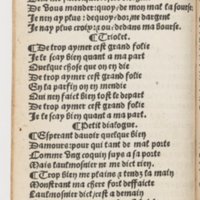 De vous mander: quoy/ de mon mal ta sourse
Je nen ay plus: dequoy/ dor/ ne dargent
Je nay plus croix: a ou/ dedans ma bourse.
¶Triolet.
¶De trop aymer cest grand folie
Je le scay bien quant a ma part
Quelque chose que on en die
De trop aymer cest grand folie
En la parfin on en mendie
Qui nen faict bien tost le depart
De trop aymer cest grand folie
Je le scay bien quant a ma part.
¶Petit dialogue.
¶Esperant davoir quelque bien
Damours: pour qui tant de mal porte
Comme ung coquin suys a sa porte
Mais laulmosnier ne me dict rien.
¶Trop bien me plains a tendz la main
Monstrant ma chere fort deffaicte
Laulmosnier dict/ cest a demain